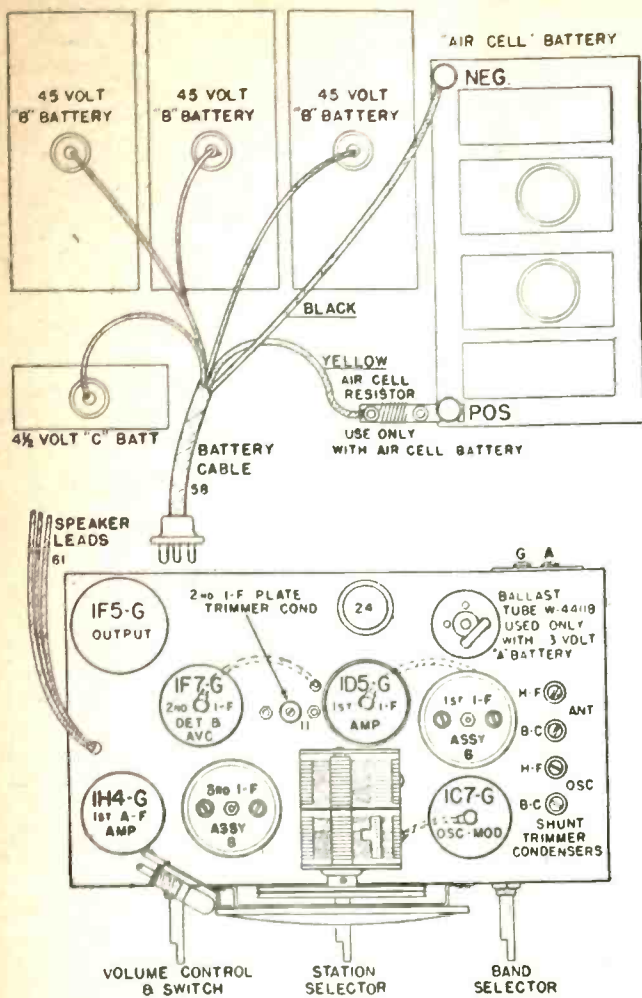 "AIR CELL" BATTERY
NEG.
45 VOLT
"B" BATTERY
45 VOLT
"B" BATTERY
45 VOLT
"B" BATTERY
BLACK
YELLOW
AIR CELL
RESISTOR
POS
USE ONLY
WITH AIR CELL BATTERY
4½ VOLT "C" BATT
BATTERY
CABLE
58
SPEAKER
LEADS
61
G A
1F5-G
OUTPUT
2ND I-F PLATE
TRIMMER COND
24
BALLAST
TUBE W-44118
USED ONLY
WITH 3 VOLT
"A" BATTERY
1F7-G
2ND I-F
DET &
AVC
11
1D5-G
1ST I-F
AMP
1ST I-F
ASSY
6
H-F
ANT
B-C
H-F
OSC
B-C
SHUNT
TRIMMER
CONDENSERS
1H4-G
1ST A-F
AMP
3RD I-F
ASSY
8
1C7-G
OSC-MOD
VOLUME CONTROL
& SWITCH
STATION
SELECTOR
BAND
SELECTOR